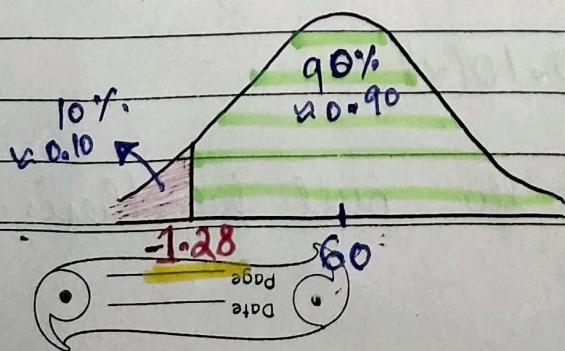 90%
≈ 0.90
10%
≈ 0.10
-1.28
60
Page
Date